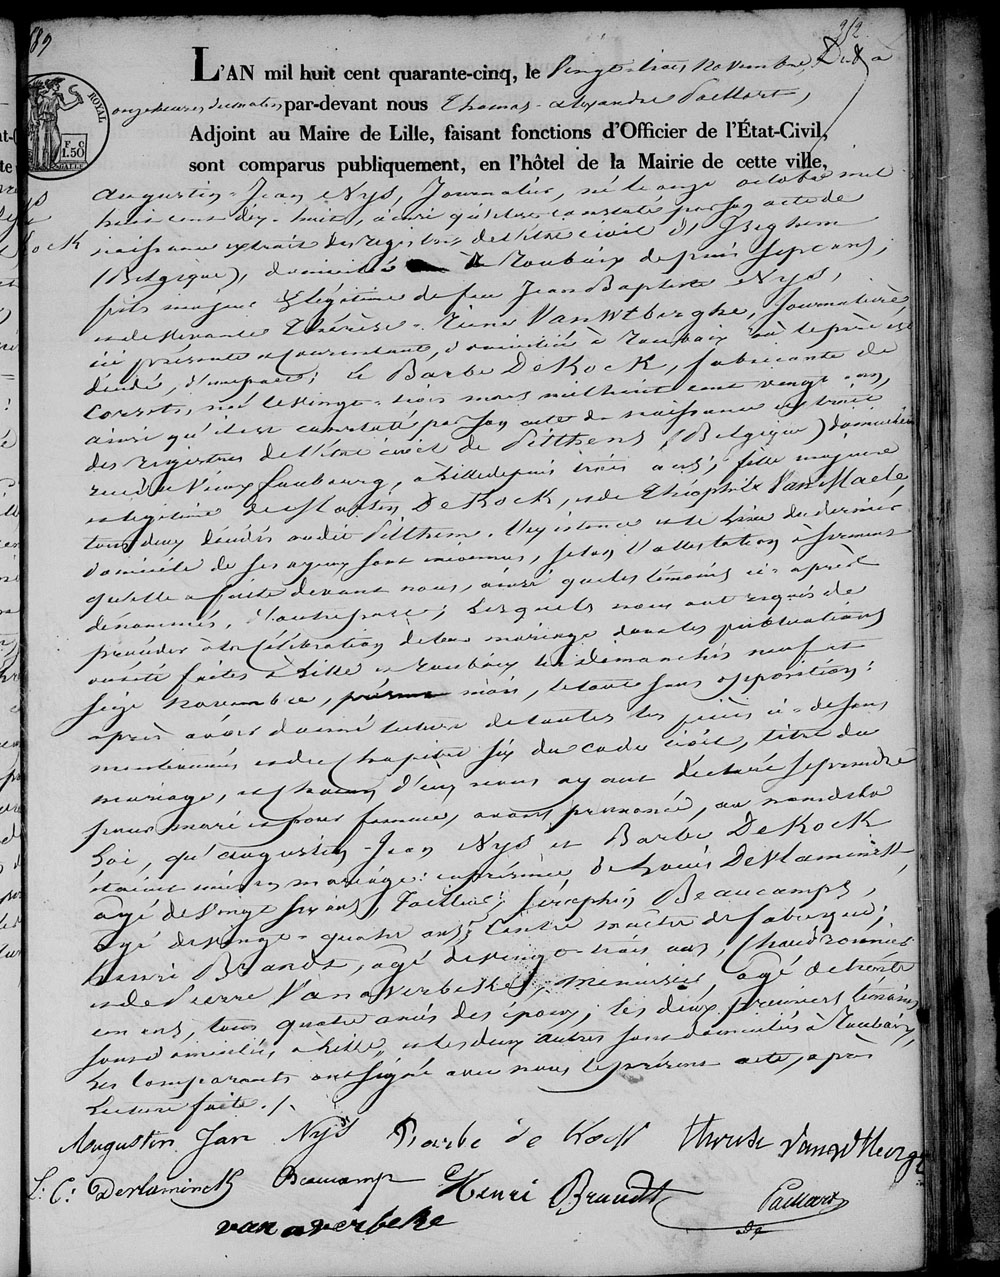 212
689
L'AN mil huit cent quarante-cinq, le Vingt-trois novembre, à
onze heures du matin, par-devant nous Thomas-Alexandre Paillart,
Adjoint au Maire de Lille, faisant fonctions d'Officier de l'État-Civil,
sont comparus publiquement, en l'hôtel de la Mairie de cette ville,
ROYAL
F C
1.50
Augustin-Jean Nys, Journalier, né le onze octobre mil
huit cent dix-huit, ainsi qu'il est constaté par son acte de
naissance extrait des registres de l'état civil d'Iseghem
(Belgique), domicilié à Roubaix depuis sept ans,
fils majeur & légitime de feu Jean Baptiste Nys,
et de vivante Thérèse - VanWtberghe, Journalière,
ici présente et consentant, domiciliée à Roubaix où le père est
décédé, d'une part; et Barbe DeKock, fabricante de
Corsets, née le vingt-trois mars mil huit cent vingt
ainsi qu'il est constaté par son acte de naissance extrait
des registres de l'état civil de Pitthem, (Belgique) domiciliée
rue du Vieux faubourg, à Lille depuis trois ans; fille majeure
et légitime de Martin DeKock, et de Théophile VanMaele,
tous deux décédés audit Pitthem. L'existence et le lieu du dernier
domicile de ses ayeux sont inconnus, selon l'attestation à serment
qu'elle a faite devant nous, ainsi que les témoins ci-après
dénommés, d'autre part; Lesquels nous ont requis de
procéder à la célébration de leur mariage dont les publications
ont été faites à Lille et Roubaix les dimanches neuf et
seize novembre, présent mois, le tout sans opposition;
après avoir donné lecture de toutes les pièces ci-dessus
mentionnées et du Chapitre six du code civil, titre du
mariage, et chacun d'eux nous ayant déclaré se prendre
pour mari et pour femme, avons prononcé, au nom de la
Loi, qu'Augustin-Jean Nys et Barbe DeKock
étaient unis en mariage: en présence de Louis DeVlaminck,
âgé de vingt six ans, Tailleur; Séraphin Beaucamps,
âgé de vingt-quatre ans, Contre maître de fabrique;
Henri Brandt, âgé de vingt-trois ans, Chaudronnier
et de Pierre VanaVerbeke, menuisier, âgé de trente
un ans, tous quatre amis des époux, les deux premiers témoins
sont domiciliés à Lille, et les deux autres sont domiciliés à Roubaix,
Les Comparants ont signé avec nous le présent acte, après
Lecture faite ./.
Augustin Jan Nys Barbe de Kock
L: C: Devlaminck Beaucamp Henri Brandt Paillart
van averbeke